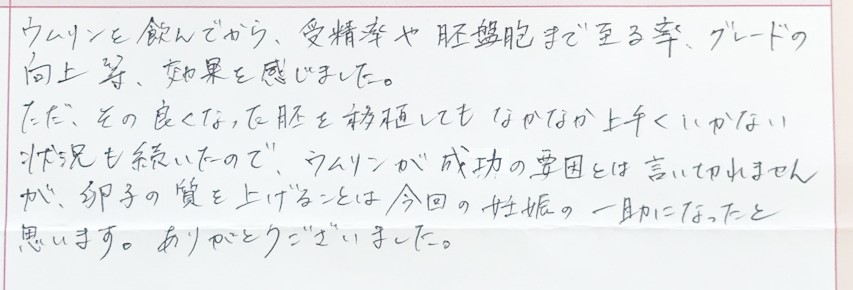 ウムリンを飲んでから、受精率や胚盤胞まで至る率、グレードの
向上等、効果を感じました。
ただ、その良くなった胚を移植してもなかなか上手くいかない
状況も続いたので、ウムリンが成功の要因とは言い切れません
が、卵子の質を上げることは今回の妊娠の一助になったと
思います。ありがとうございました。